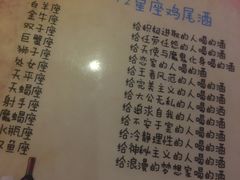 星座鸡尾酒
白羊座
金牛座
双子座
巨蟹座
狮子座
处女座
天平座
天蝎座
射手座
魔蝎座
水瓶座
双鱼座
给积极进取的人喝的酒
给任劳任怨的人喝的酒
给天使与魔鬼化身喝的酒
给恋家的人喝的酒
给王者风范的人喝的酒
给完美主义的人喝的酒
给大公无私的人喝的酒
给追求自我的人喝的酒
给不安于室的人喝的酒
给冷静理性的人喝的酒
给神秘主义的人喝的酒
给浪漫的梦想家喝的酒